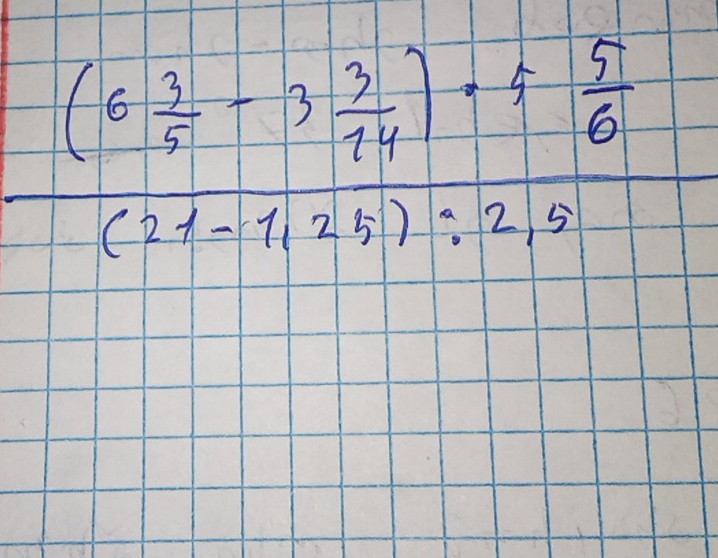 (6 3/5 - 3 3/14) · 5 5/6
(21 - 1,25) : 2,5